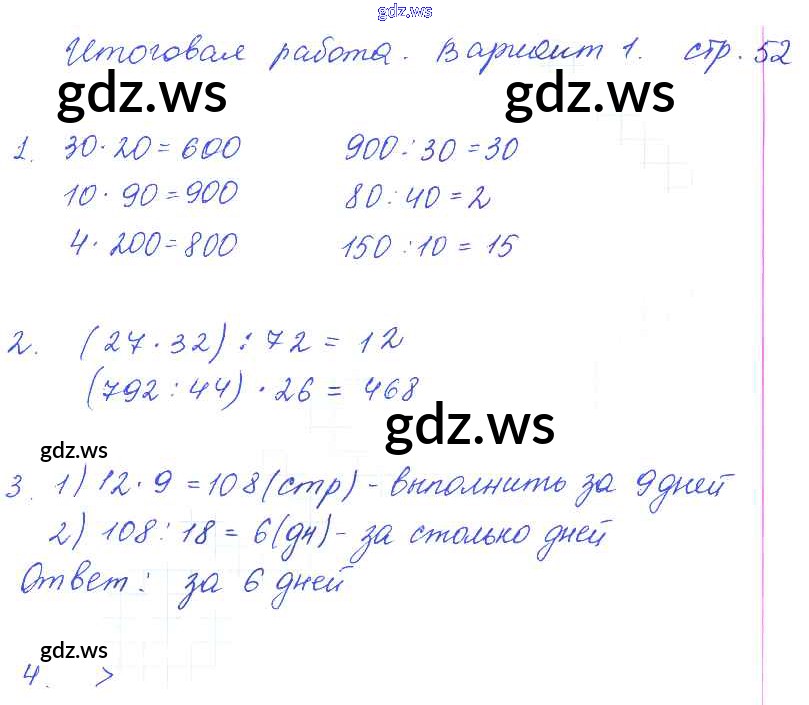 gdz.ws
Итоговая работа. Вариант 1. стр. 52
gdz.ws gdz.ws
1. 30·20=600 900:30=30
10·90=900 80:40=2
4·200=800 150:10=15
2. (27·32):72=12
(792:44)·26=468
gdz.ws
gdz.ws
3. 1) 12·9=108(стр)-выполнить за 9 дней
2) 108:18=6(дн)-за столько дней
Ответ: за 6 дней
gdz.ws gdz.ws
4. >